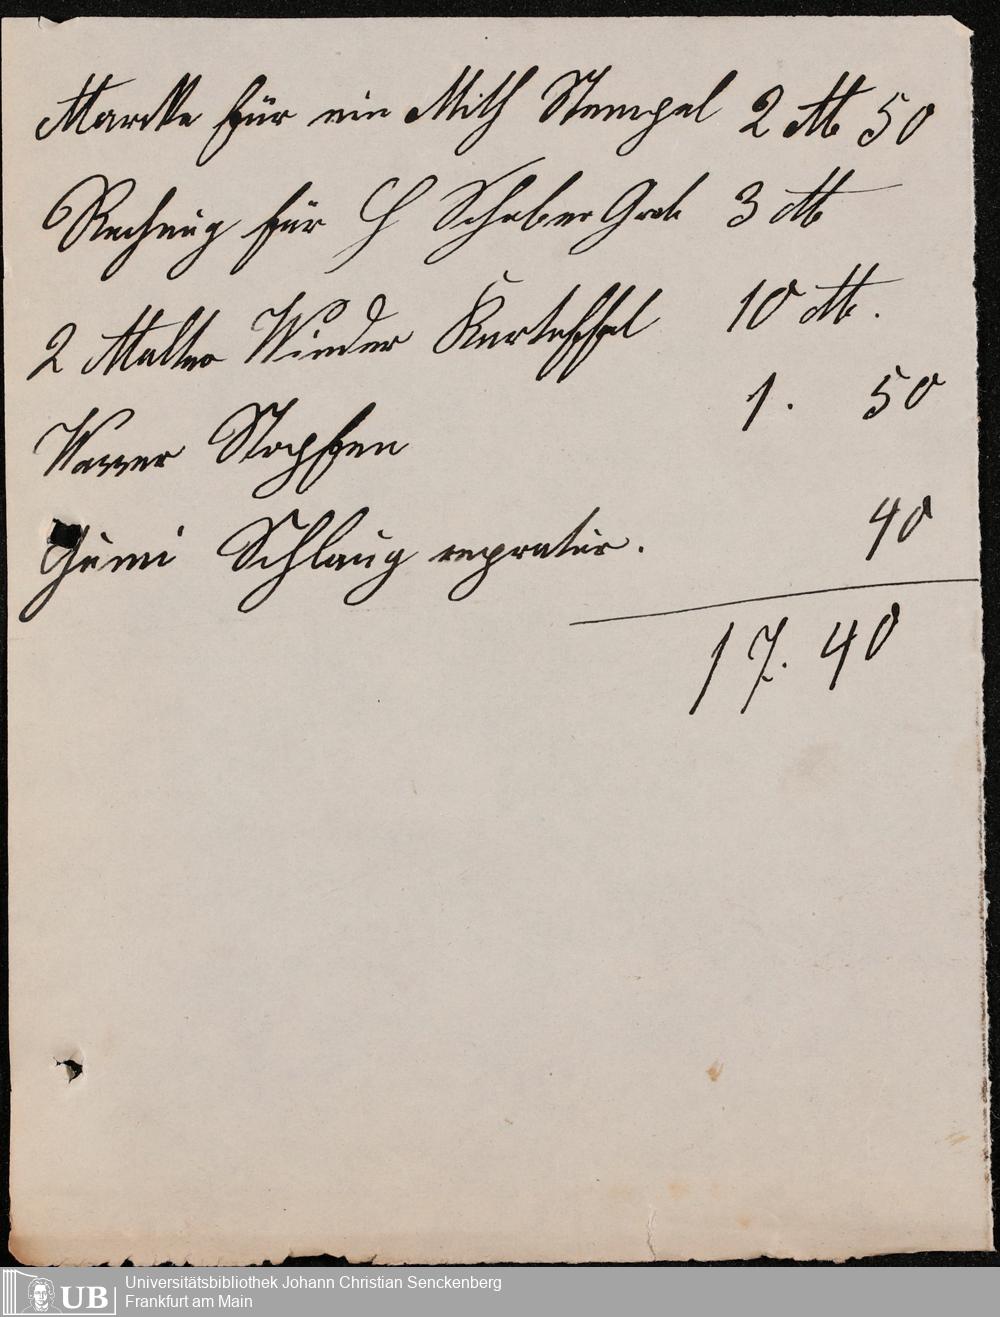 Marcke für ein Mith Stempel 2 M 50
Rechnug für H Schaber Grab 3 M
2 Malter Winder Kartoffel 10 M.
Wasser Stopfen 1. 50
Gumi Schlaug repratur. 40
17. 40
UB
Universitätsbibliothek Johann Christian Senckenberg
Frankfurt am Main